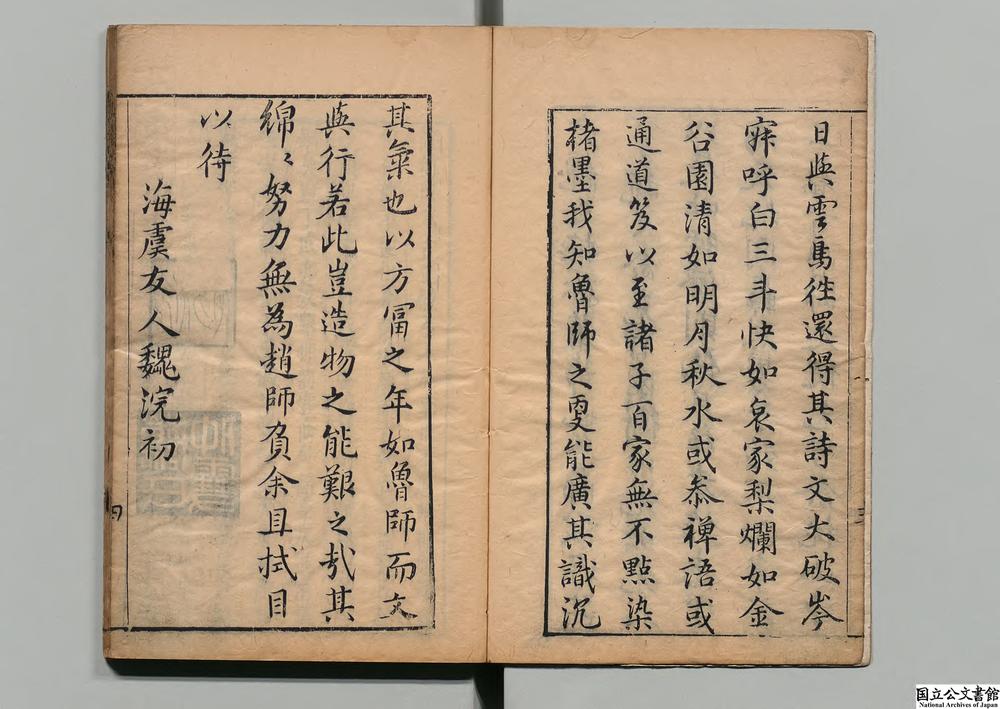 日與雲馬徃還得其詩文大破岑
寐呼白三斗快如哀家梨爛如金
谷園清如明月秋水或叅禅語或
通道笈以至諸子百家無不點染
楮墨我知魯師之更能廣其識沉
其氣也以方富之年如魯師而文
與行若此豈造物之能艱之㦲其
綿〻努力無為趙師負余且拭目
以待
海虞友人魏浣初
三
四
国立公文書館
National Archives of Japan